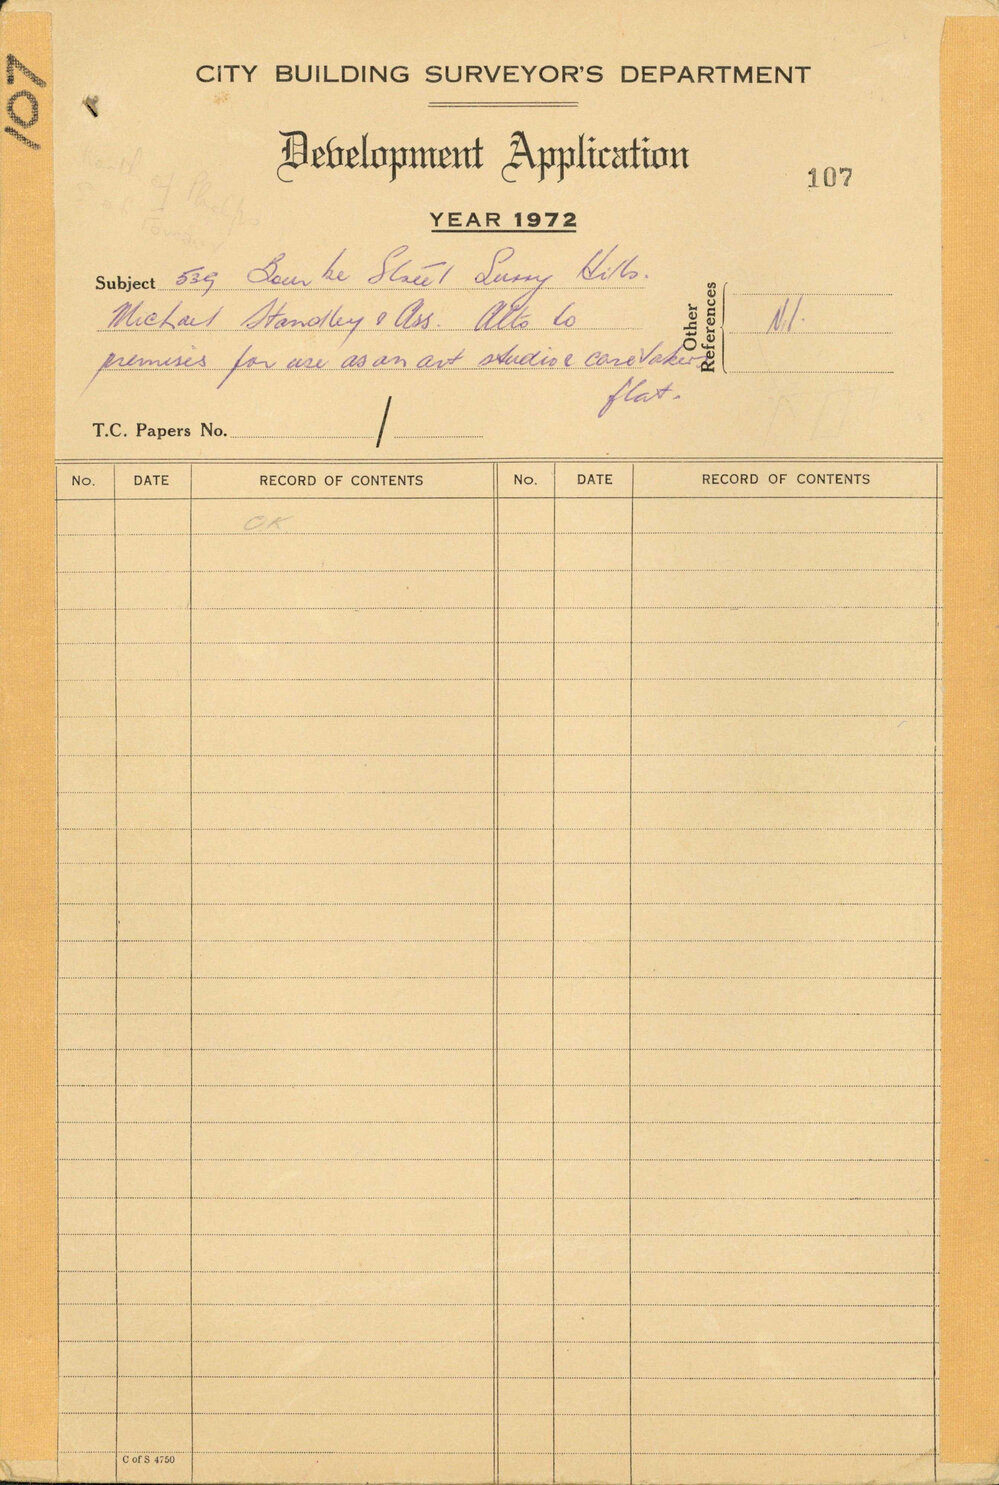 107
CITY BUILDING SURVEYOR'S DEPARTMENT
Development Application
107
YEAR 1972
Subject 539 Bourke Street Surry Hills.
Michael Standley & Ass. Alts to
premises for use as an art studio & caretakers
flat.
Other References Nil.
T.C. Papers No. /
No. DATE RECORD OF CONTENTS No. DATE RECORD OF CONTENTS
OK
C of S 4750